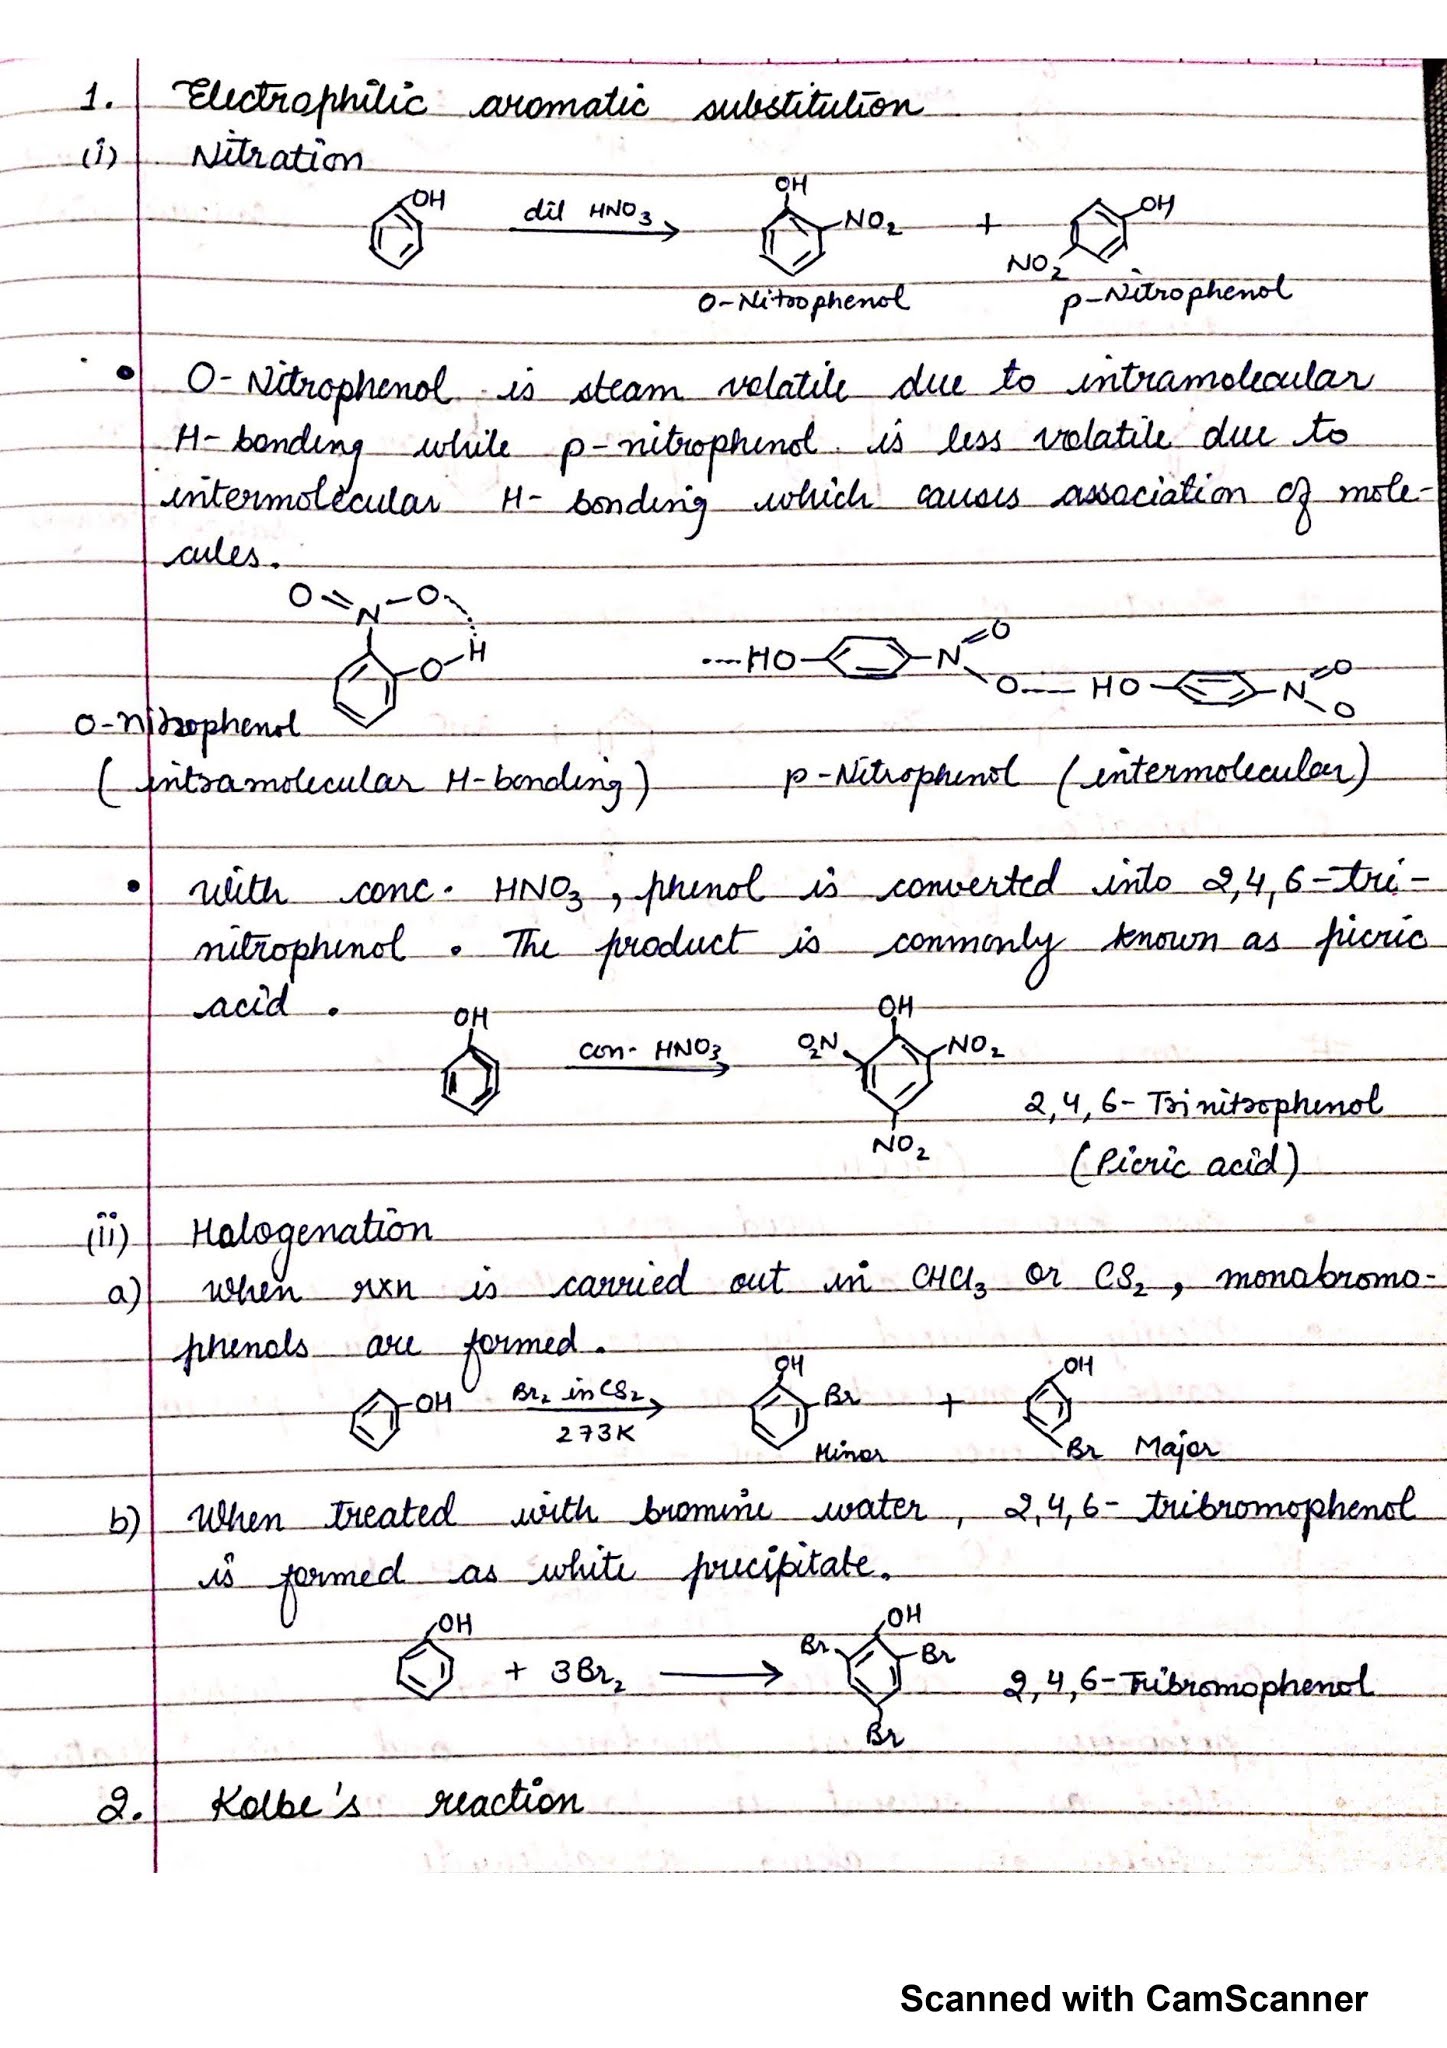 1. Electrophilic aromatic substitution
(i) Nitration
OH dil HNO3 OH NO2 + OH NO2
O-Nitrophenol p-Nitrophenol
• O-Nitrophenol is steam volatile due to intramolecular
H-bonding while p-nitrophenol is less volatile due to
intermolecular H-bonding which causes association of mole-
cules.
O N O H O
---HO N O O--- HO N O O
O-nitrophenol
(intramolecular H-bonding) p-Nitrophenol (intermolecular)
• with conc. HNO3, phenol is converted into 2,4,6-tri-
nitrophenol. The product is commonly known as picric
acid.
OH con. HNO3 OH O2N NO2 NO2
2,4,6-Trinitrophenol
(Picric acid)
(ii) Halogenation
a) when rxn is carried out in CHCl3 or CS2, monobromo-
phenols are formed.
OH Br2 in CS2 273K OH Br Minor + OH Br Major
b) When treated with bromine water, 2,4,6-tribromophenol
is formed as white precipitate.
OH + 3Br2 OH Br Br Br 2,4,6-Tribromophenol
2. Kolbe's reaction
Scanned with CamScanner